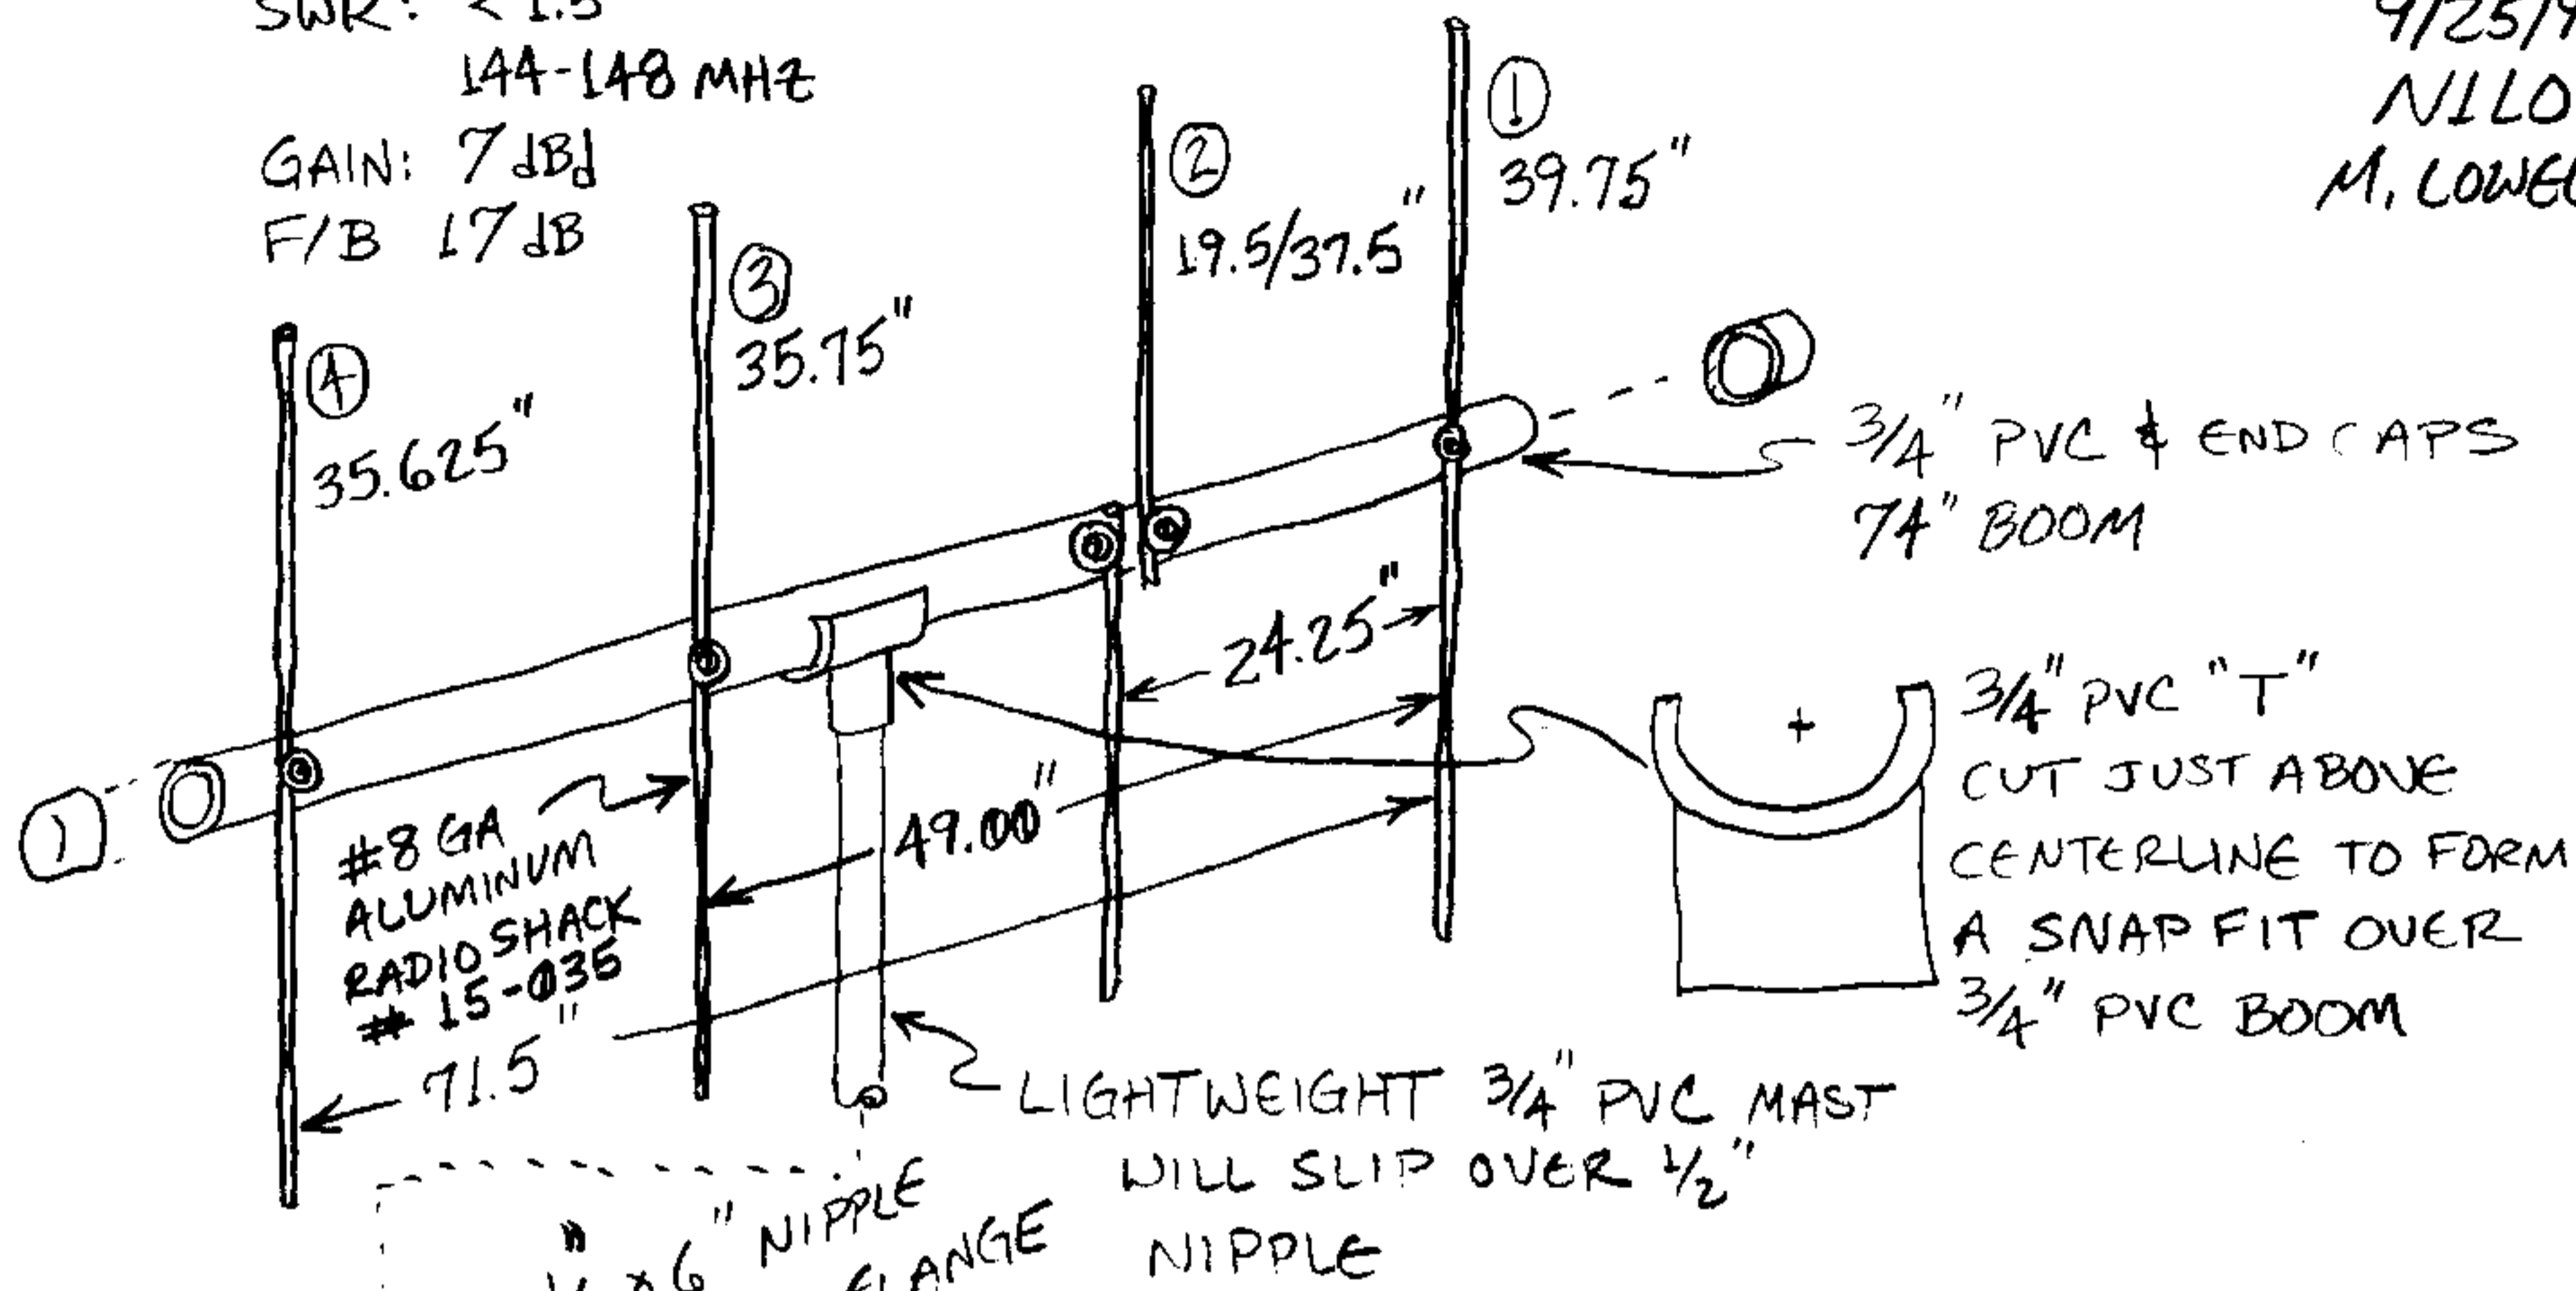 SWR: < 1.5
144-148 MHZ
GAIN: 7 dBd
F/B 17 dB
9/25/9
NILO
M. LOWE
①
39.75"
②
19.5/37.5"
③
35.75"
④
35.625"
3/4" PVC & END CAPS
74" BOOM
24.25"
49.00"
71.5"
#8 GA
ALUMINUM
RADIO SHACK
# 15-035
3/4" PVC "T"
CUT JUST ABOVE
CENTERLINE TO FORM
A SNAP FIT OVER
3/4" PVC BOOM
LIGHTWEIGHT 3/4" PVC MAST
WILL SLIP OVER 1/2"
NIPPLE
x 6" NIPPLE
FLANGE